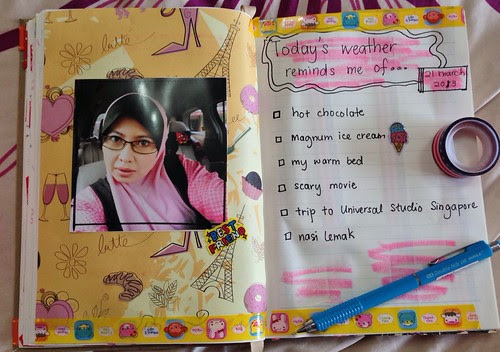 latte
BEST
FRIENDS
latte
Today's weather
reminds me of...
21 march
2013
hot chocolate
magnum ice cream
my warm bed
scary movie
trip to Universal Studio Singapore
nasi lemak